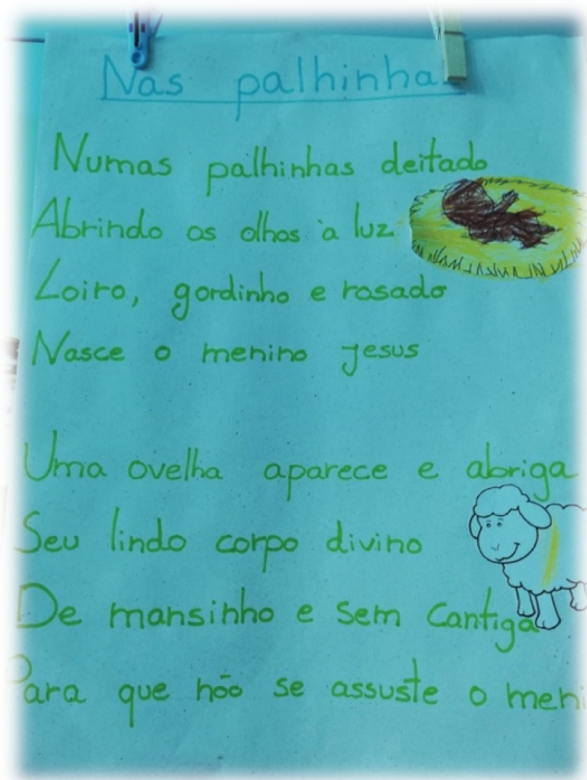 Nas palhinha
Numas palhinhas deitado
Abrindo os olhos à luz
Loiro, gordinho e rosado
Nasce o menino Jesus
Uma ovelha aparece e abriga
Seu lindo corpo divino
De mansinho e sem cantiga
Para que não se assuste o meni